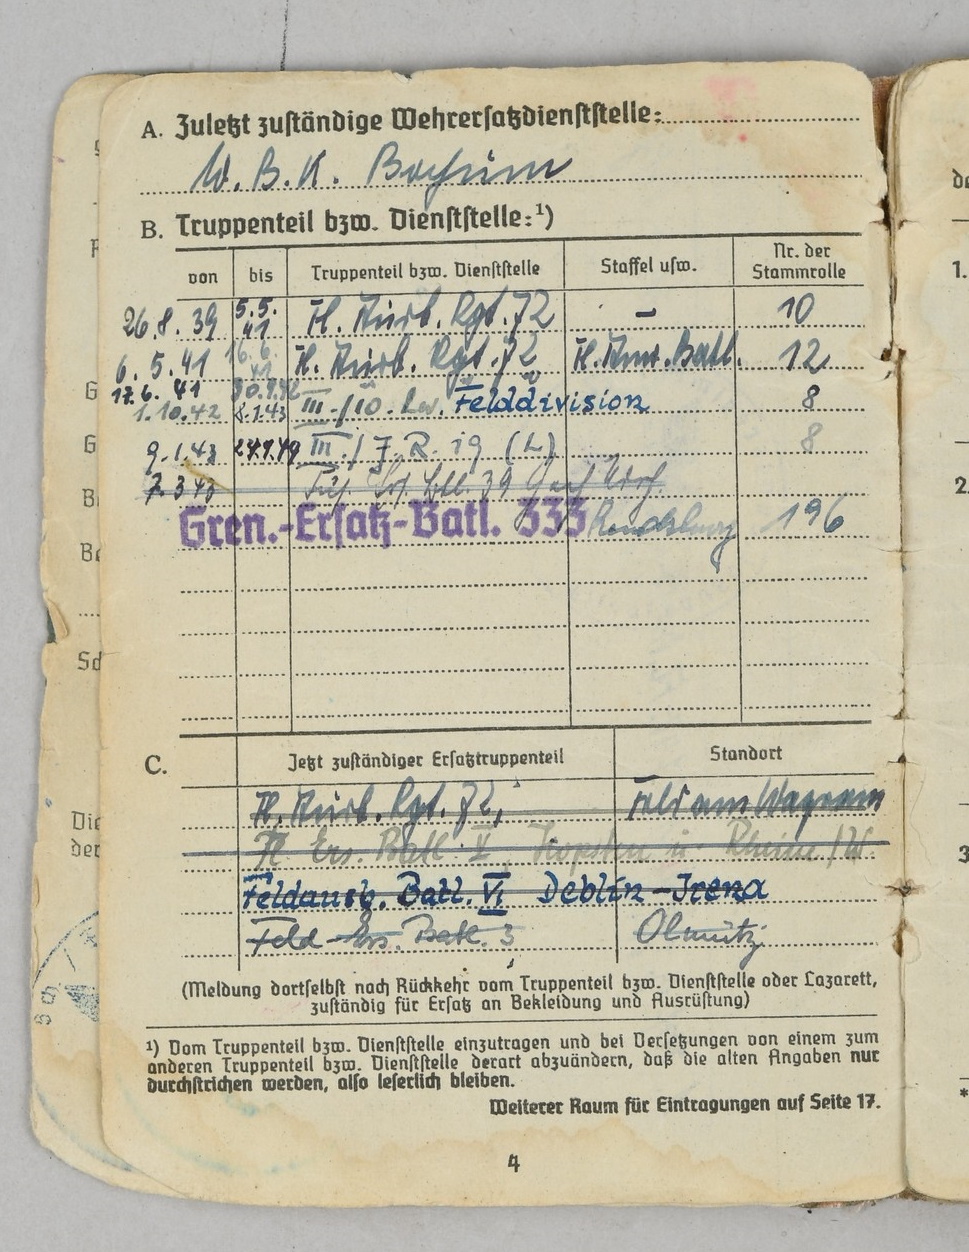 A. Zuletzt zuständige Wehrersatzdienststelle:
W.B.K. Bochum
B. Truppenteil bzw. Dienststelle:¹)
von bis Truppenteil bzw. Dienststelle Staffel usw. Nr. der Stammrolle
26.8.39 5.5.41 Rgt. 72 - 10
6.5.41 16.6.41 Rgt. 72 12
17.6.41
1.10.42 8.1.43 III./10. Lw. Felddivision 8
9.1.43 III./J.R. 19 (L) 8
7.3.43 39
Gren.-Ersatz-Batl. 333 Rendsburg 196
C. Jetzt zuständiger Ersatztruppenteil Standort
Rgt. 72, am Wagram
Ers. Batl. Rheine/W.
Feldausb. Batl. VI Deblin-Irena
Feld-Ers. Batl. 3 Olmütz
(Meldung dortselbst nach Rückkehr vom Truppenteil bzw. Dienststelle oder Lazarett,
zuständig für Ersatz an Bekleidung und Ausrüstung)
¹) Vom Truppenteil bzw. Dienststelle einzutragen und bei Versetzungen von einem zum
anderen Truppenteil bzw. Dienststelle derart abzuändern, daß die alten Angaben nur
durchstrichen werden, also leserlich bleiben.
Weiterer Raum für Eintragungen auf Seite 17.
4